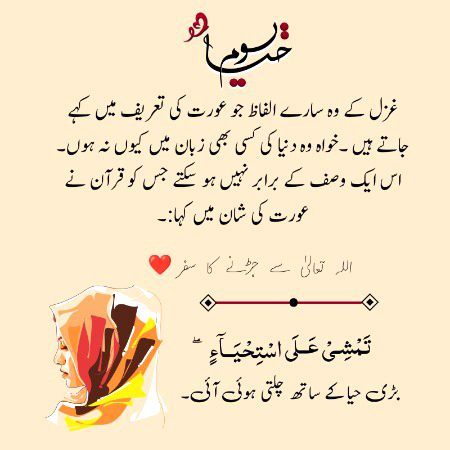 یوم حیا
غزل کے وہ سارے الفاظ جو عورت کی تعریف میں کہے
جاتے ہیں ۔خواہ وہ دنیا کی کسی بھی زبان میں کیوں نہ ہوں۔
اس ایک وصف کے برابر نہیں ہو سکتے جس کو قرآن نے
عورت کی شان میں کہا:۔
اللہ تعالیٰ سے جڑنے کا سفر ❤️
تَمْشِیْ عَلَی اسْتِحْیَآءٍ ۖ
بڑی حیا کے ساتھ چلتی ہوئی آئی۔